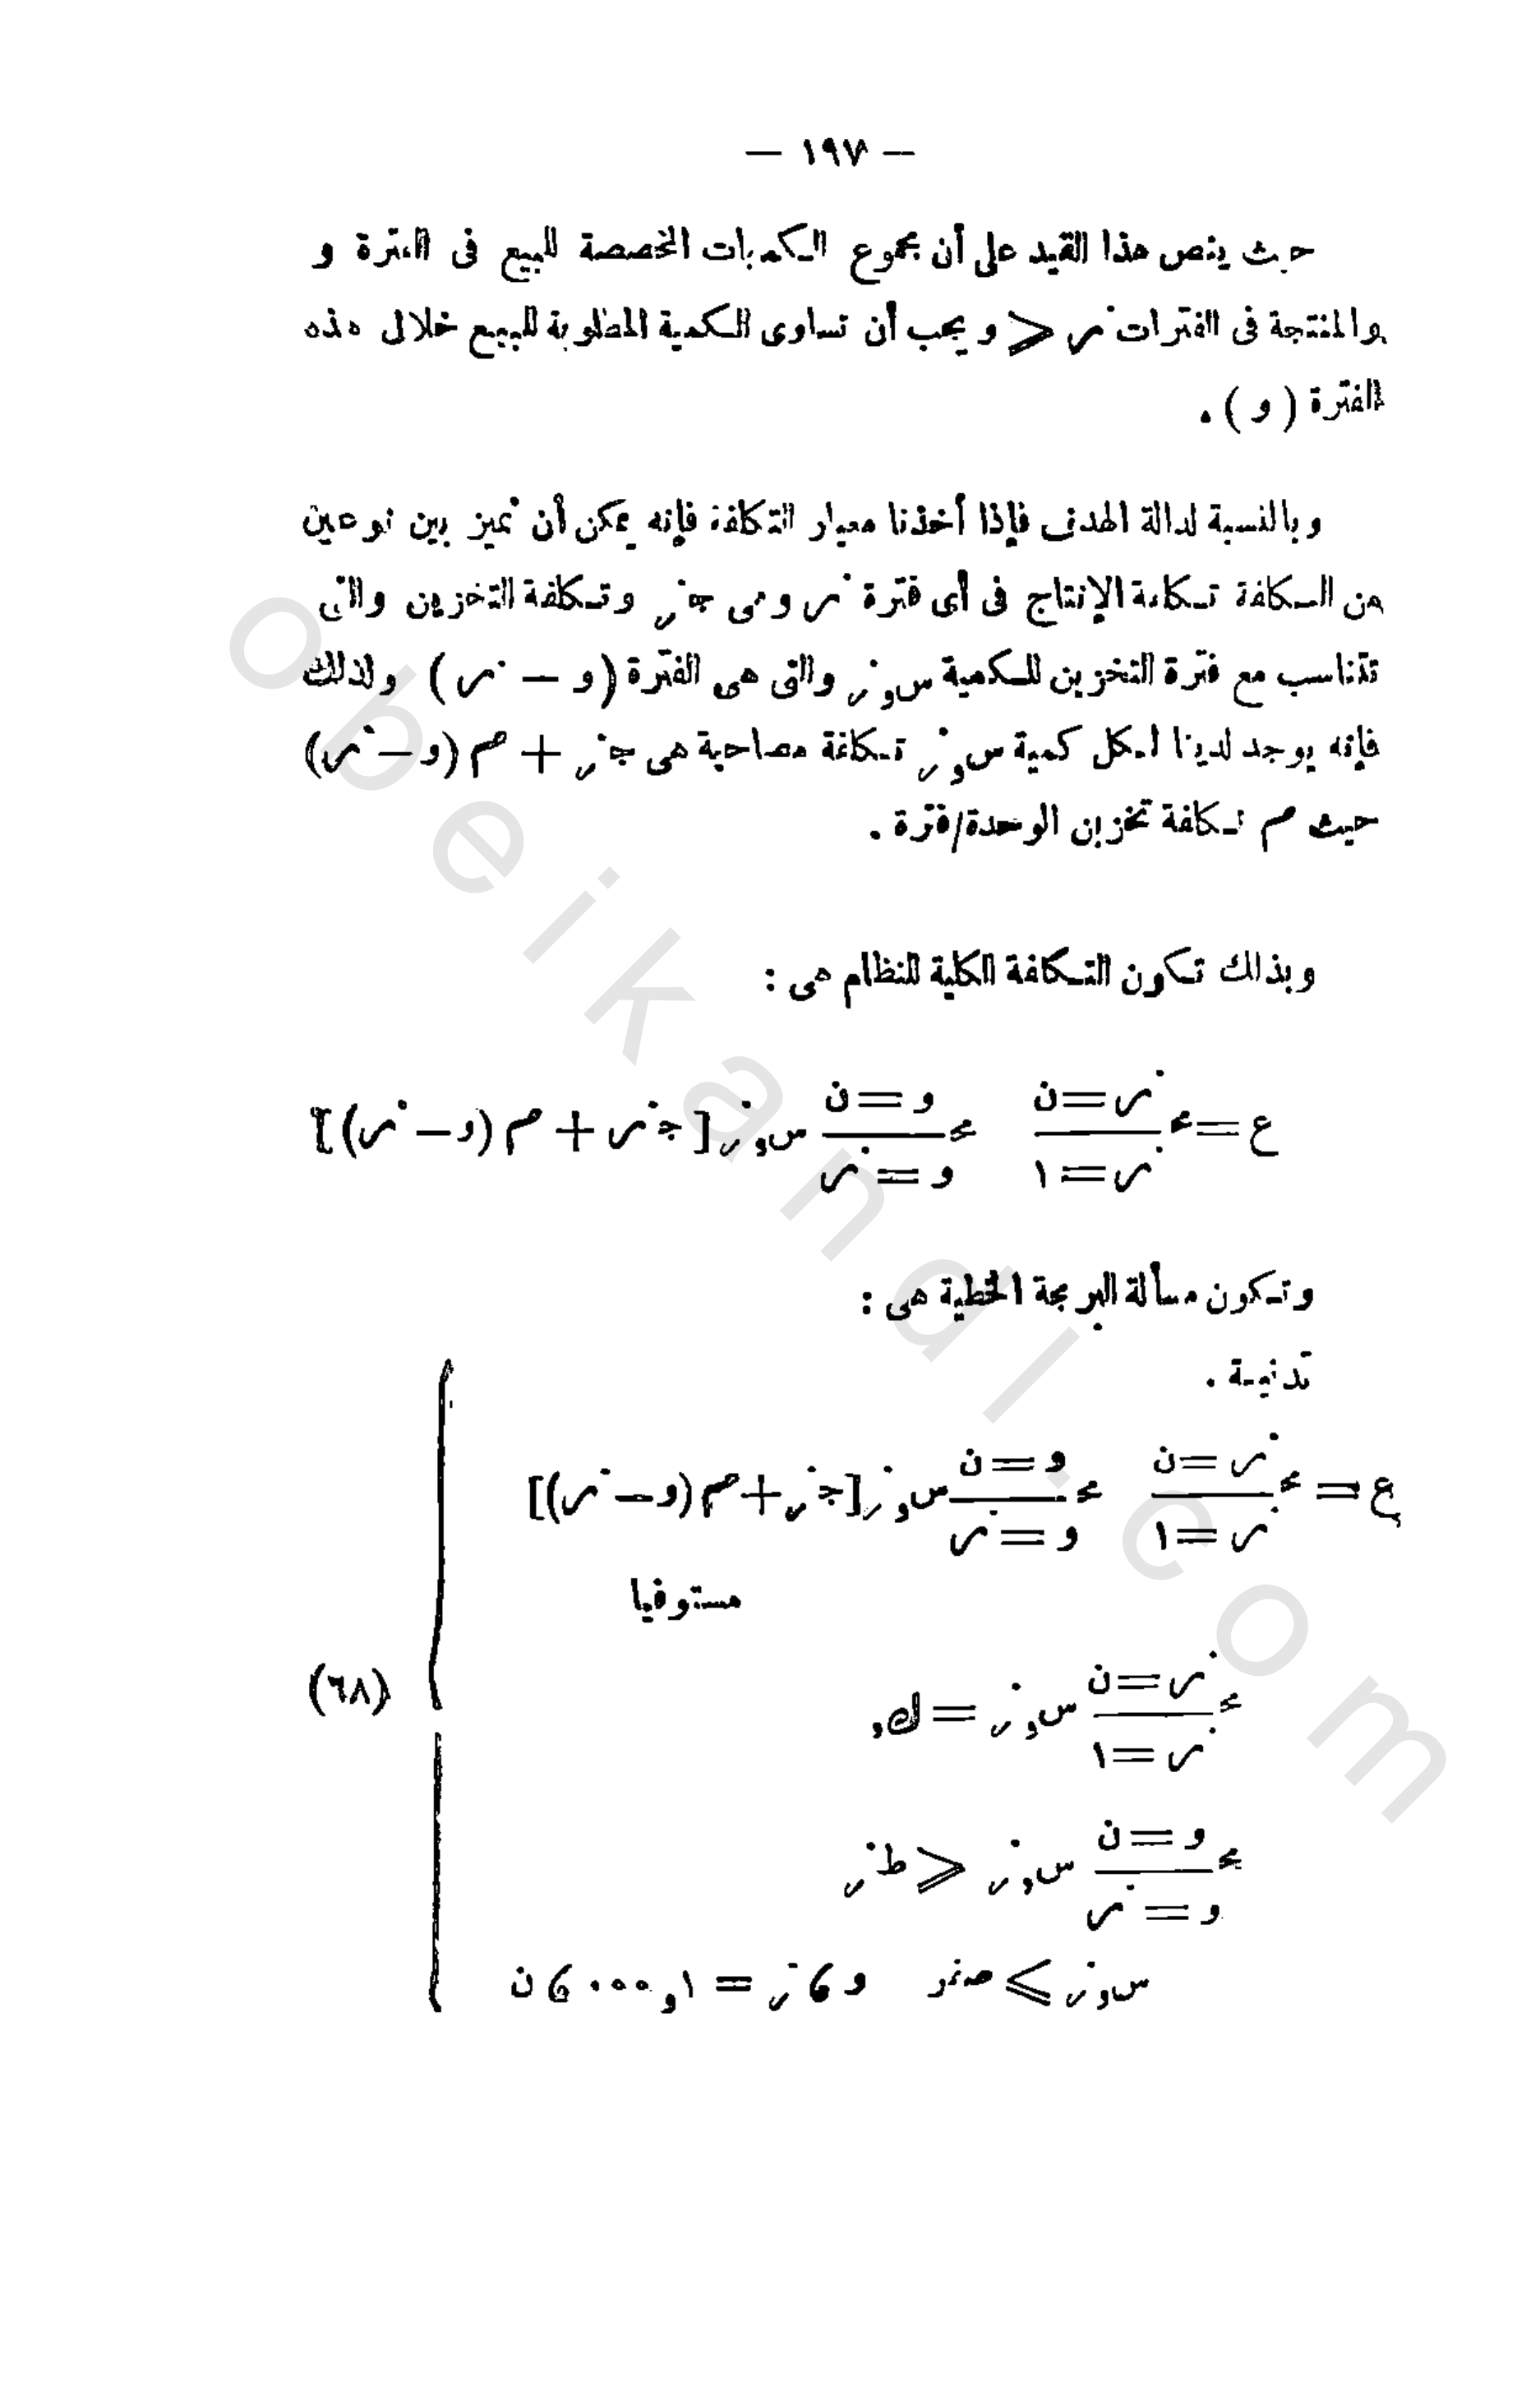 — ١٩٧ —
حيث ينص هذا القيد على أن مجموع الكميات المخصصة للبيع فى الفترة و
والمنتجة فى الفترات ز ⩽ و يجب أن تساوى الكمية المطلوبة للبيع خلال هذه
الفترة ( و ) .
وبالنسبة لدالة الهدف فإذا أخذنا معيار التكلفة فإنه يمكن أن نميز بين نوعين
من التكلفة تكلفة الإنتاج فى أى فترة ز وهى جـز وتكلفة التخزين والتى
تتناسب مع فترة التخزين للكمية س و ز والتى هى الفترة ( و — ز ) ولذلك
فإنه يوجد لدينا لكل كمية س و ز تكلفة مصاحبة هى جـز + م ( و — ز )
حيث م تكلفة تخزين الوحدة/فترة .
وبذلك تكون التكلفة الكلية للنظام هى :
ز = ن و = ن
ع = مجـ مجـ س و ز [ جـز + م ( و — ز ) ]
ز = ١ و = ز
وتكون مسألة البرمجة الخطية هى :
تدنية .
ز = ن و = ن
ع = مجـ مجـ س و ز [ جـز + م ( و — ز ) ]
ز = ١ و = ز
مستوفيا
ز = ن
مجـ س و ز = ك و (٦٨)
ز = ١
و = ن
مجـ س و ز ⩽ ط ز
و = ز
س و ز ⩾ صفر و ، ز = ١ و ... ، ن
obeikandl.com